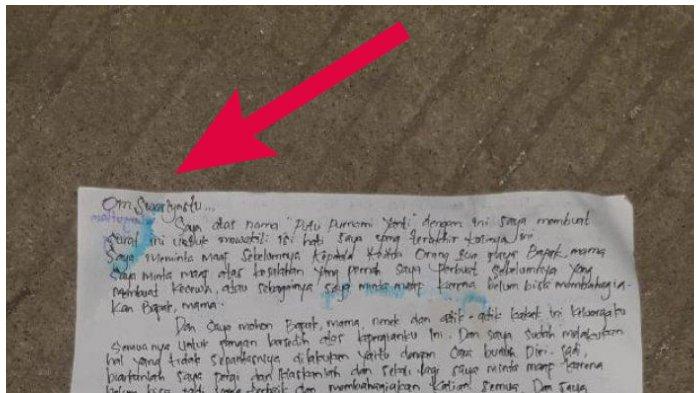 Om Swastyastu...
Saya atas nama "Putu Purnami Yanti" dengan ini saya membuat
Surat ini untuk mewakili isi hati saya yang terakhir kalinya ini
Saya meminta maaf sebelumnya kepada kedua orang tua saya Bapak, mama
Saya minta maaf atas kesalahan yang pernah saya perbuat sebelumnya yang
membuat kecewa, atau sebagainya saya minta maaf karena belum bisa membahagia-
kan Bapak, mama.
Dan saya mohon Bapak, mama, nenek dan adik-adik kakak ini keluargaku
Semuanya untuk jangan bersedih atas kepergianku ini. Dan saya sudah melakukan
hal yang tidak sepantasnya dilakukan yaitu dengan cara bunuh Diri. Jadi,
biarkanlah saya pergi dan ikhlaskanlah dan sekali lagi saya minta maaf karena
belum bisa jadi yang terbaik dan membahagiakan kalian semua. Dan saya